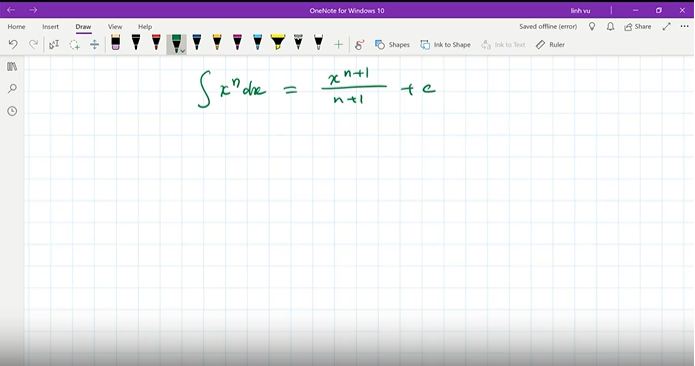 OneNote for Windows 10
linh vu
Home Insert Draw View Help
Saved offline (error)
Share
Shapes
Ink to Shape
Ink to Text
Ruler
∫ xⁿ dx = xⁿ⁺¹ / n+1 + c